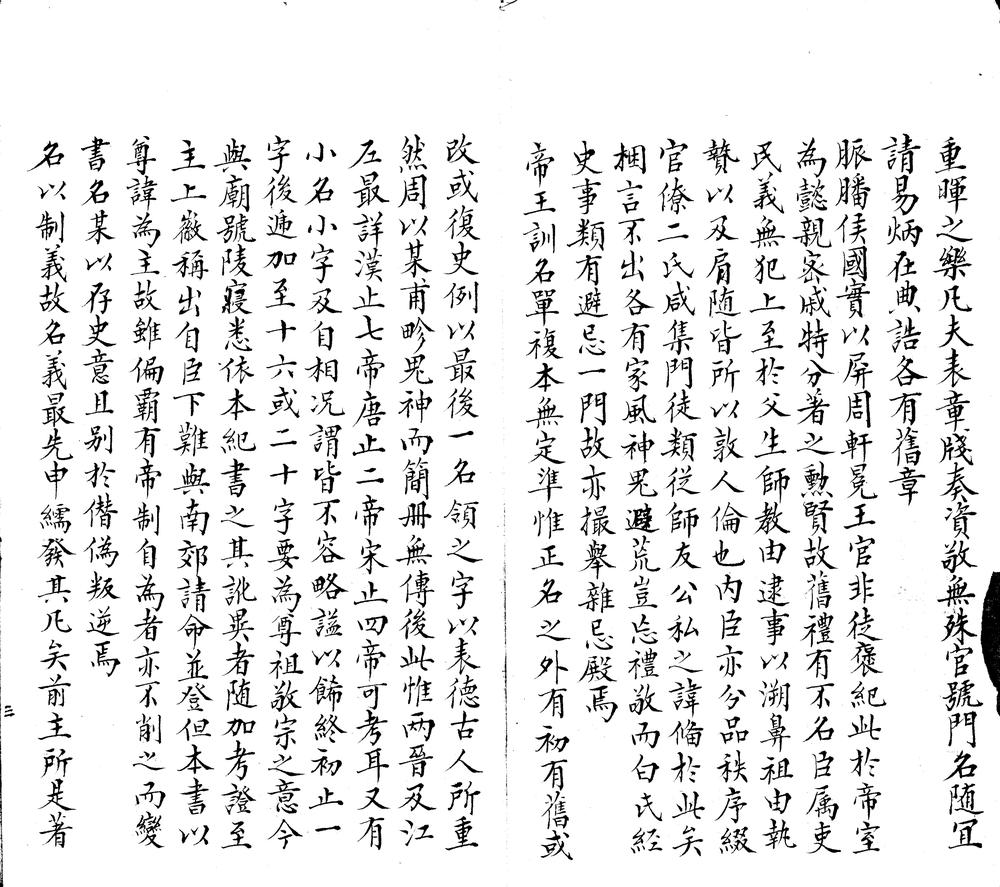 重暉之樂凡夫表章牋奏資敬無殊官號門名随宜
請易炳在典誥各有舊章
脈膰侯國實以屏周軒冕王官非徒褒紀此於帝室
為懿親宻戚特分著之勲賢故舊禮有不名臣属吏
民義無犯上至於父生師教由逮事以溯鼻祖由執
贄以及肩随皆所以敦人倫也内臣亦分品秩序綴
官僚二氏咸集門徒類従師友公私之諱俻於此矣
梱言不出各有家風神鬼避荒豈忘禮敬而白氏經
史事類有避忌一門故亦撮舉雜忌殿焉
帝王訓名單複本無定準惟正名之外有初有舊或
改或復史例以最後一名領之字以表德古人所重
然周以某甫畛鬼神而簡册無傳後此惟兩晉及江
左最詳漢止七帝唐止二帝宋止四帝可考耳又有
小名小字及自相况謂皆不容略諡以飾終初止一
字後遞加至十六或二十字要為尊祖敬宗之意今
與廟號陵寢悉依本紀書之其訛異者随加考證至
主上徽稱出自臣下難與南郊請命並登但本書以
尊諱為主故雖偏霸有帝制自為者亦不削之而變
書名某以存史意且别於僣偽叛逆焉
名以制義故名義最先申繻發其凡矣前主所是著
三